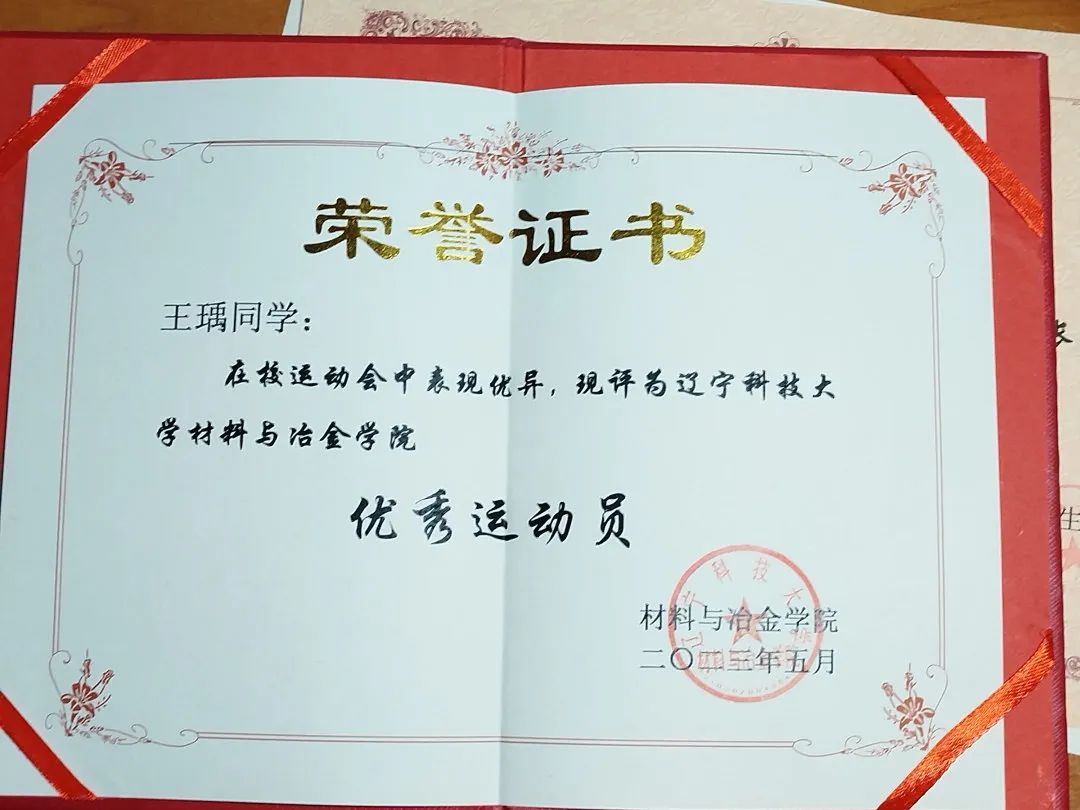 荣誉证书
王瑀同学：
在校运动会中表现优异，现评为辽宁科技大
学材料与冶金学院
优秀运动员
辽宁科技大学
材料与冶金学院
二〇二三年五月
生